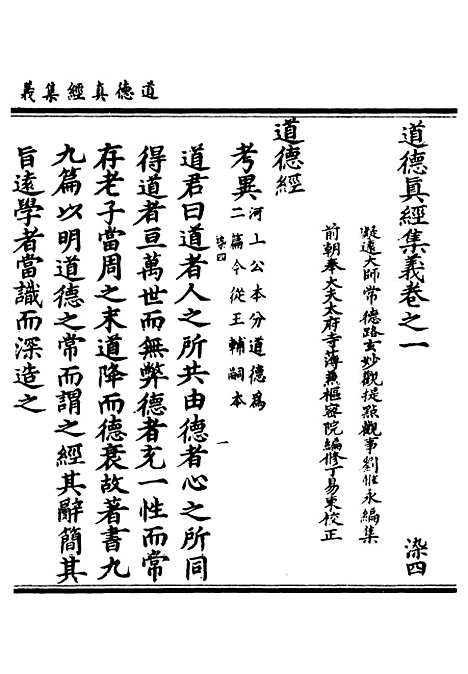 道德真經集義
道德眞經集義卷之一
染四
凝遠大師常德路玄妙觀提點觀事劉惟永編集
前朝奉大夫太府寺簿兼樞密院編修丁易東校正
道德經
考異河上公本分道德爲
二篇今從王輔嗣本
染四
一
道君曰道者人之所共由德者心之所同
得道者亘萬世而無弊德者充一性而常
存老子當周之末道降而德衰故著書九
九篇以明道德之常而謂之經其辭簡其
旨遠學者當識而深造之